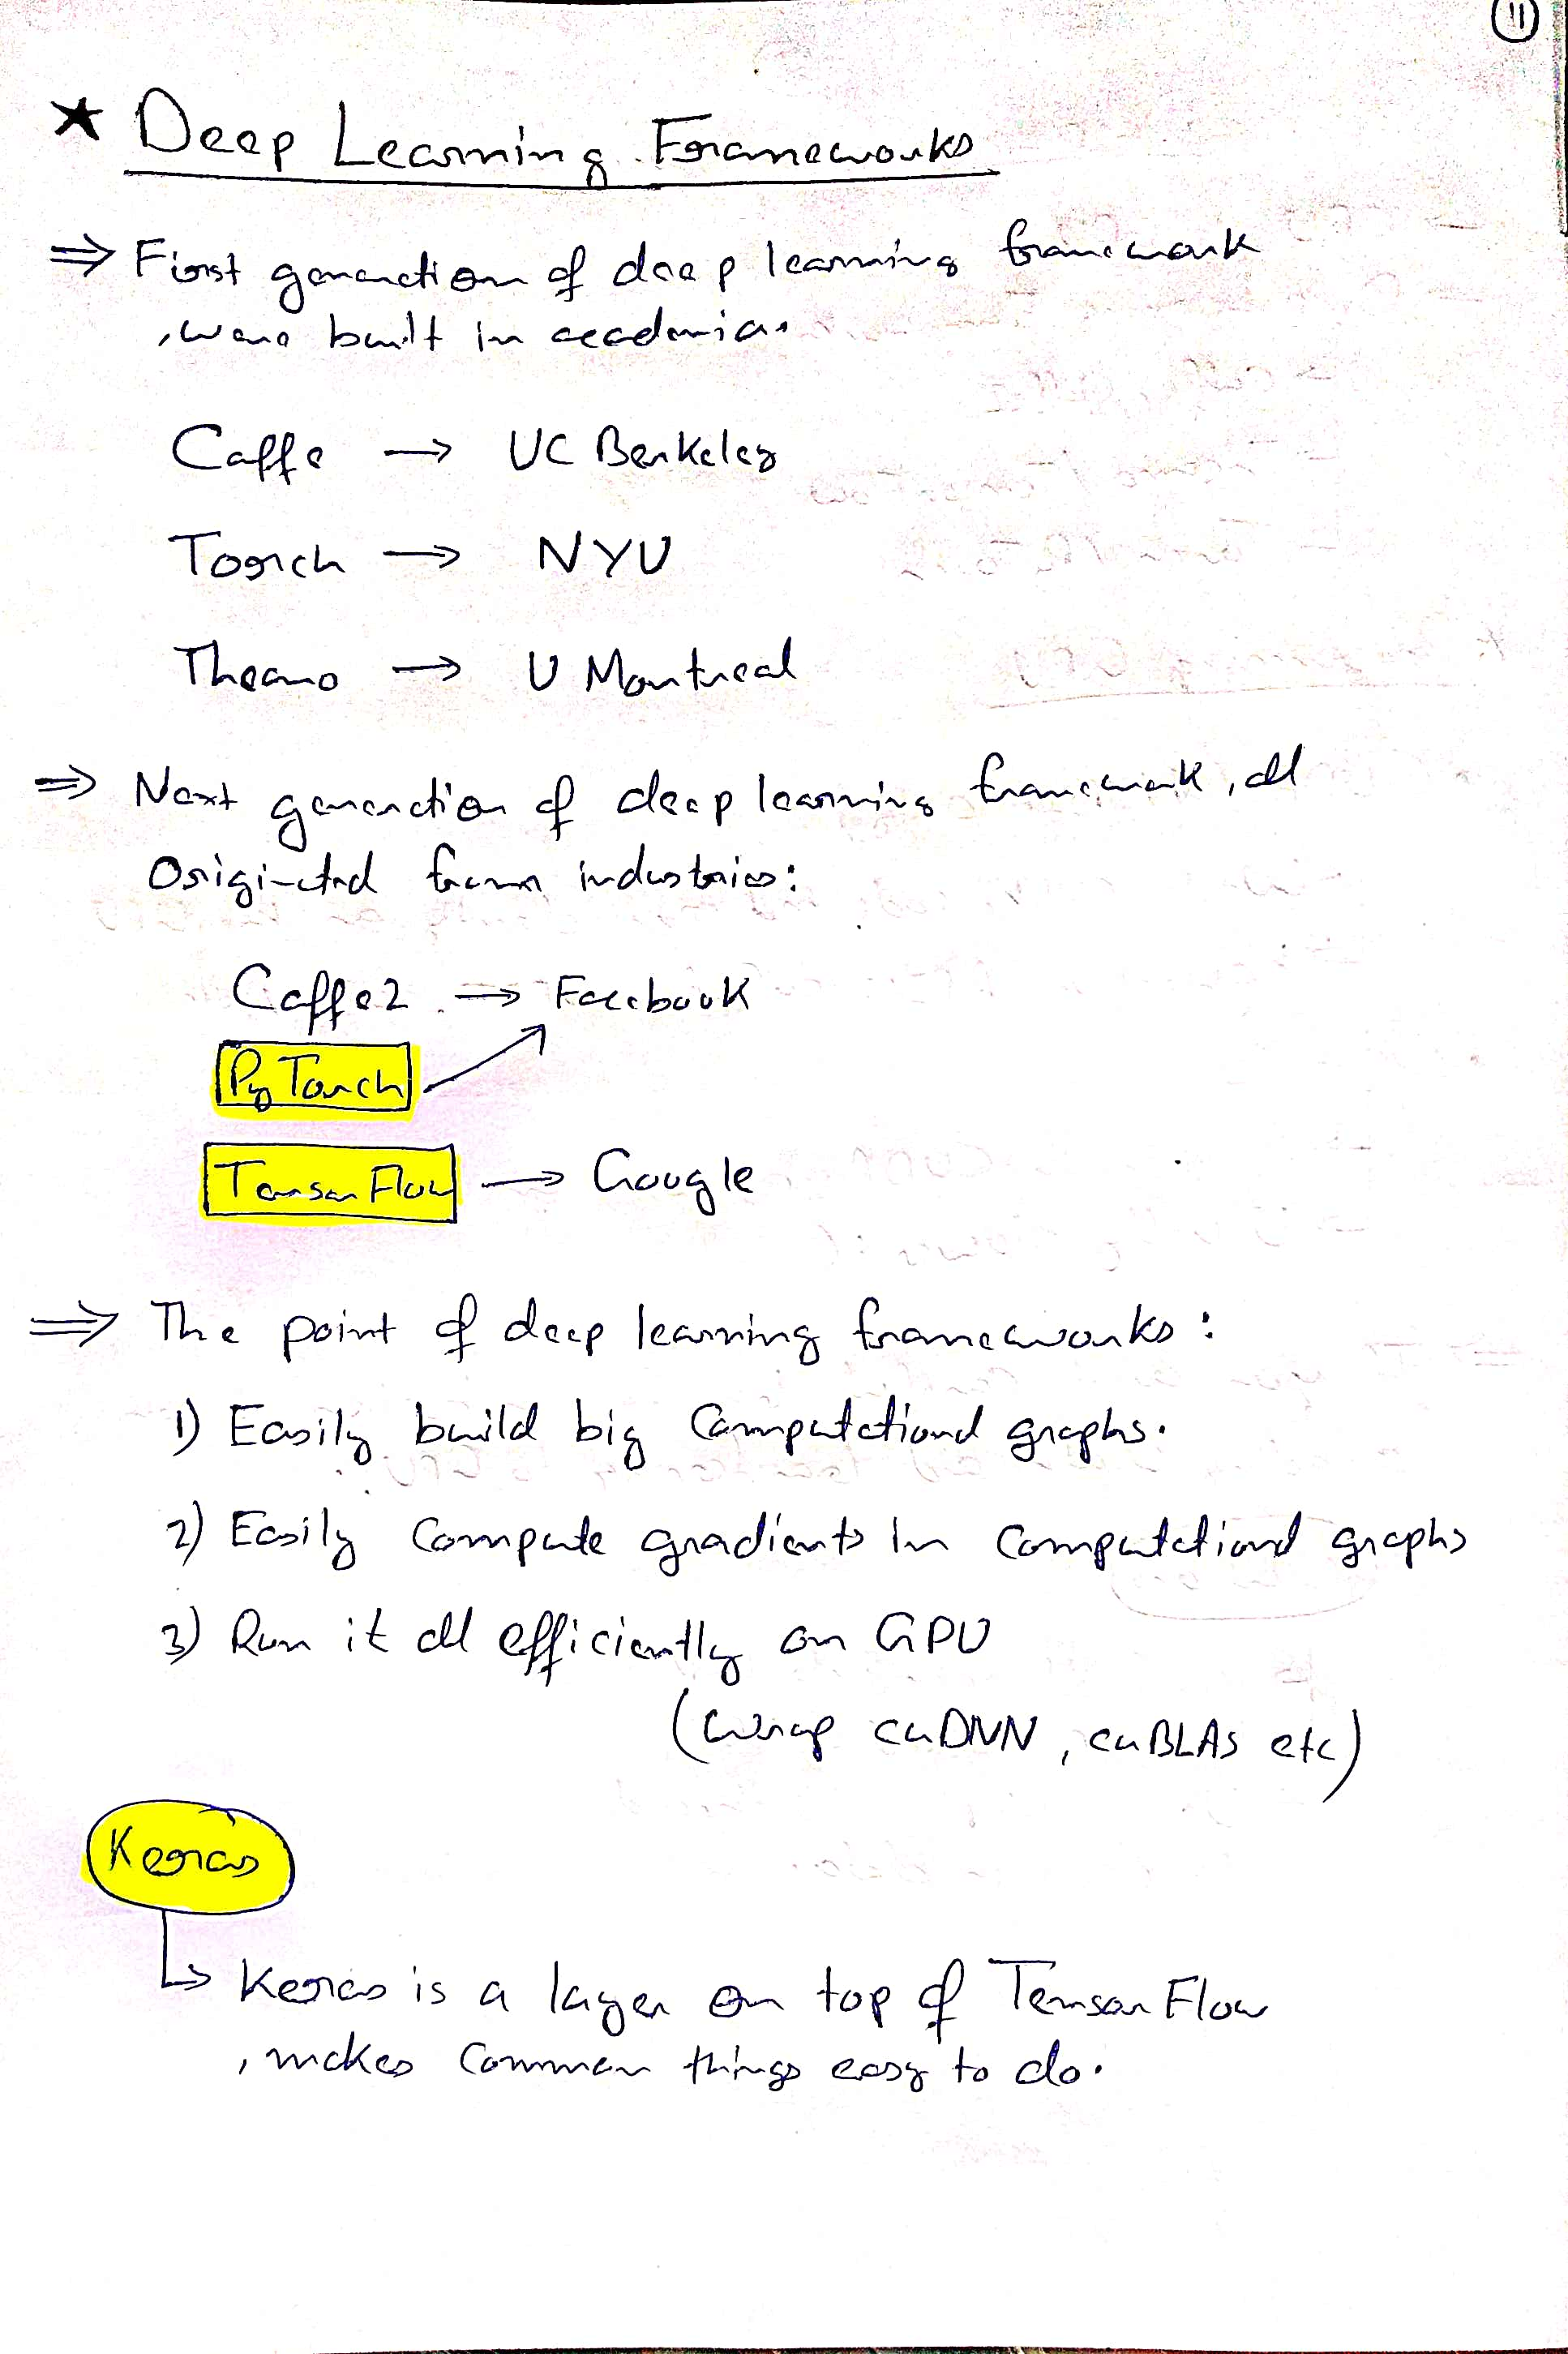 11
* Deep Learning Frameworks
⇒ First generation of deep learning framework
, were built in academia.
Caffe → UC Berkeley
Torch → NYU
Theano → U Montreal
⇒ Next generation of deep learning framework, all
Originated from industries:
Caffe2 → Facebook
PyTorch
TensorFlow → Google
⇒ The point of deep learning frameworks:
1) Easily build big Computational graphs.
2) Easily Compute gradients In Computational graphs
3) Run it all efficiently on GPU
(Wrap cuDNN, cuBLAS etc)
Keras
↳ Keras is a layer on top of TensorFlow
, makes Common things easy to do.